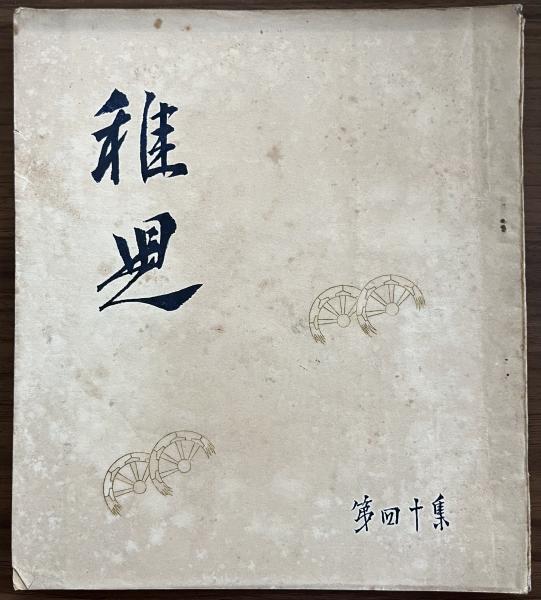 稚兒
第四十集